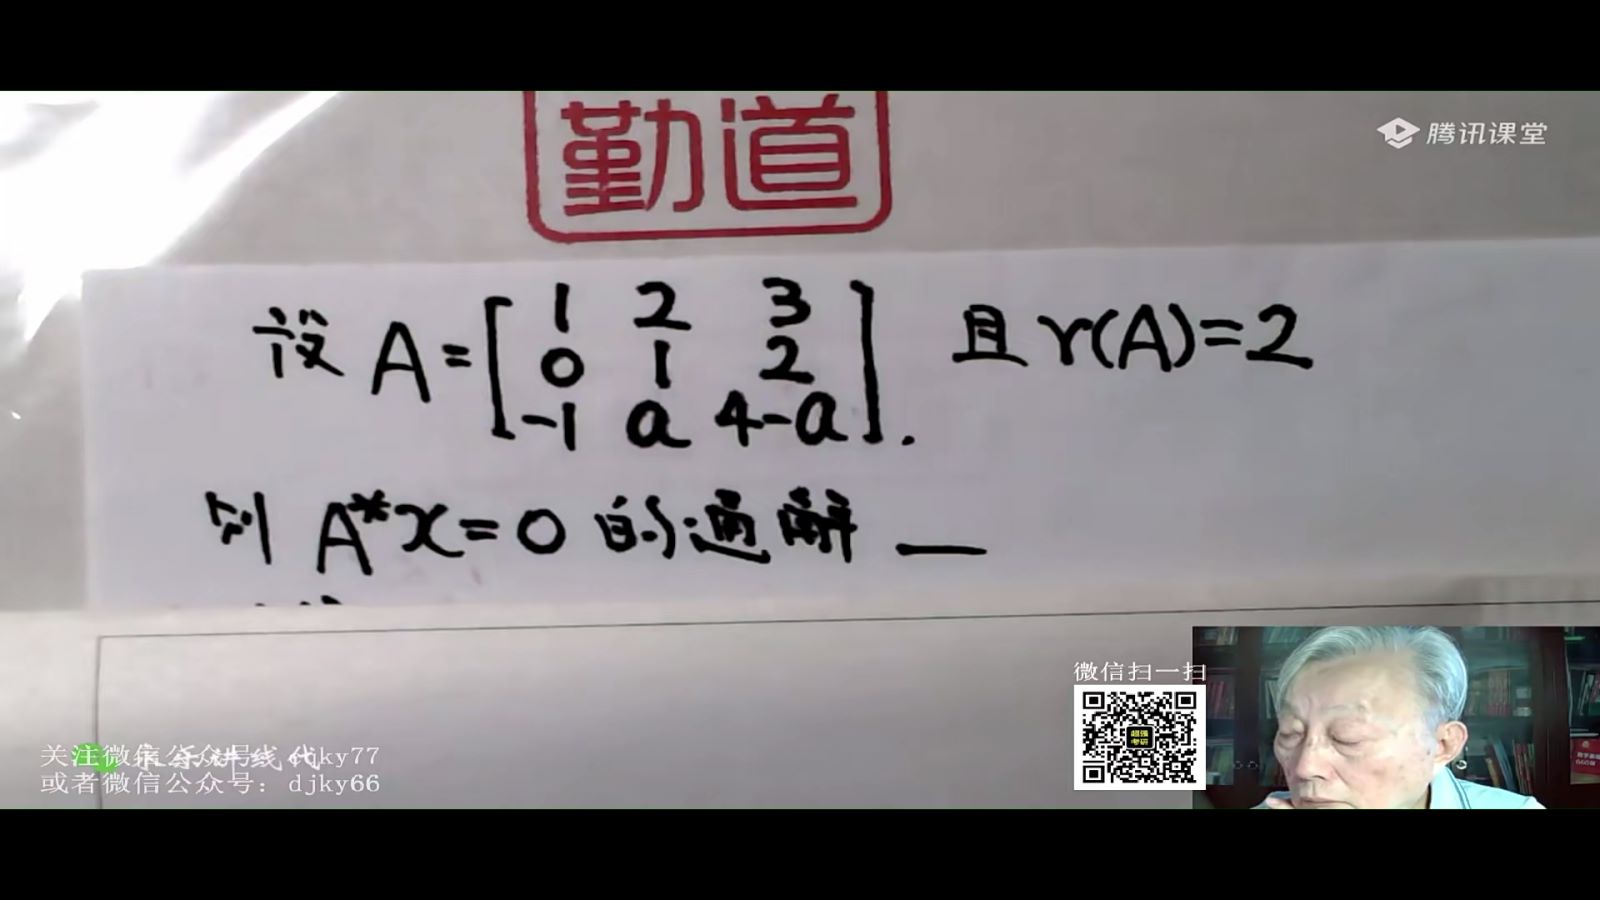 勤道
腾讯课堂
设 A = [ 1 2 3
0 1 2
-1 a 4-a ]. 且 r(A)=2
则 A*x=0 的通解 __
微信扫一扫
关注微信公众号: djky77
或者微信公众号: djky66